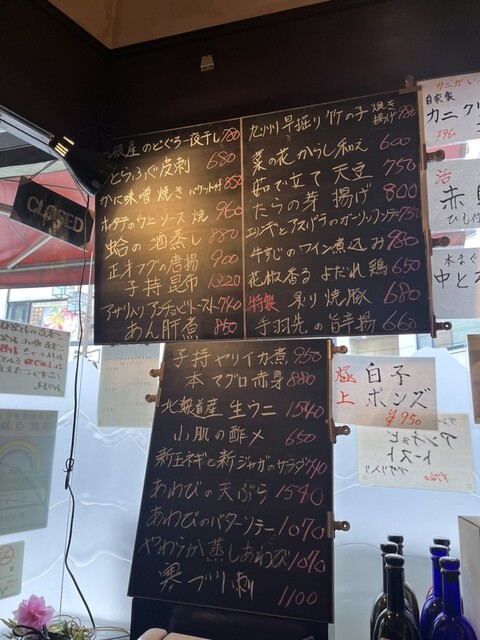 産のどぐろ一夜干し 780
とらふぐ皮刺 680
かに味噌焼き バゲット付 850
ホタテのウニソース焼 960
蛤の酒蒸し 880
正才フグの唐揚 900
子持昆布 1320
アサリ入りアンチョビトースト 740
あん肝煮 850
早掘り竹の子 焼き 揚げ 780
菜の花からし和え 600
茹で立て天豆 750
たらの芽揚げ 800
エリンギとアスパラのガーリックソテー
牛すじのワイン煮込み 980
花椒香るよだれ鶏 650
特製 炙り焼豚 680
手羽先の旨辛揚 660
子持ヤリイカ煮
本マグロ赤身 880
北海道産 生ウニ 1540
小肌の酢〆 650
新玉ネギと新ジャガのサラダ 710
あわびの天ぷら 1540
あわびのバターソテー 1070
やわらか蒸しあわび 1070
寒ブリ刺 1100
CLOSED
自家製
カニク
治
赤
ひも付
本まぐ
中と
極上 白子ポンズ
¥950
アンチョビ
トースト
アサリ入り